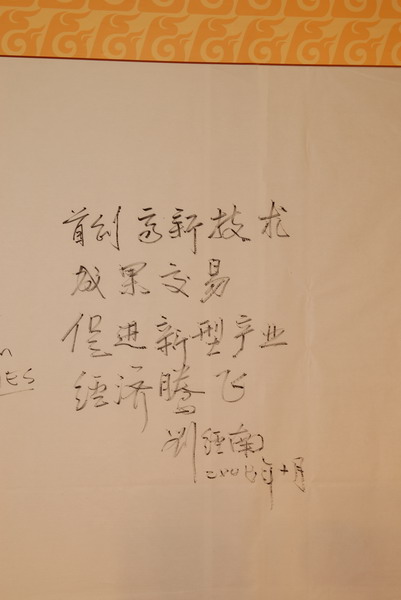 首创高新技术
成果交易
促进新型产业
经济腾飞
刘经南
二〇〇八年十月
n
ES